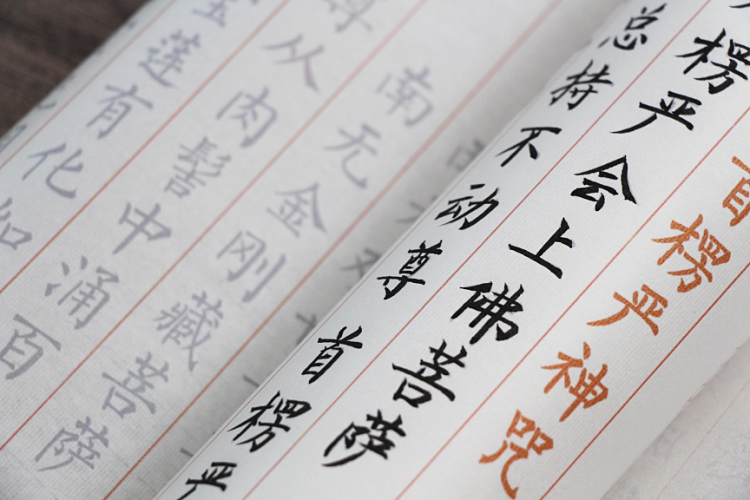 首楞严神咒
楞严会上佛菩萨
总持不动尊 首楞严
南无金刚藏菩萨
尊从肉髻中涌百
莲有化如